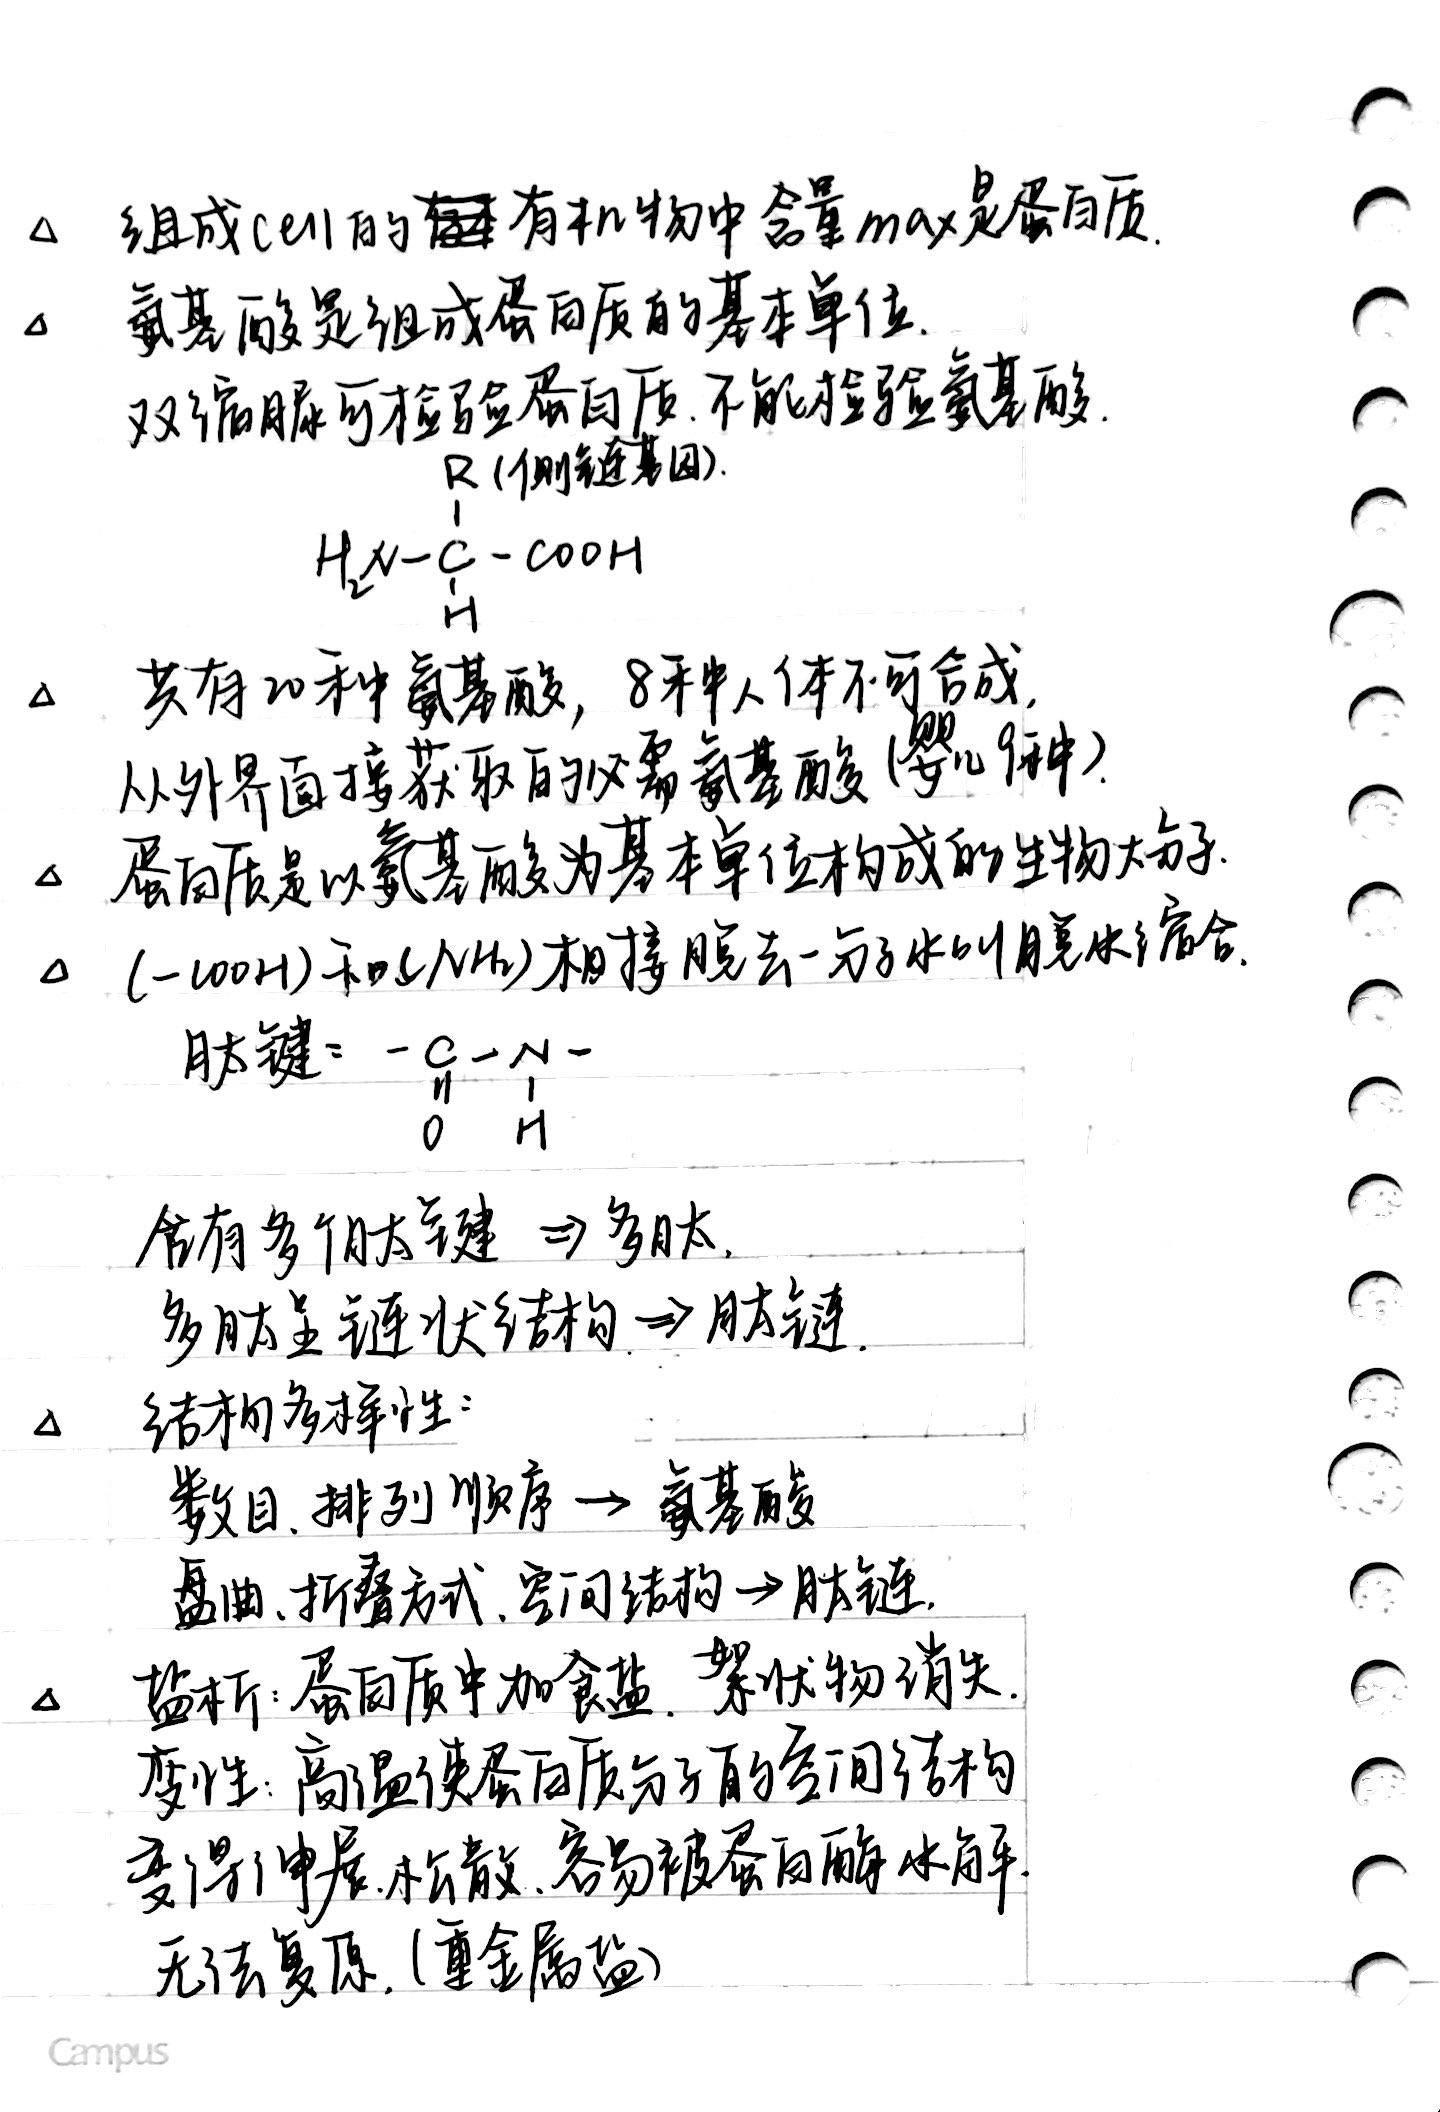 △ 组成cell的有机物中含量max是蛋白质.
△ 氨基酸是组成蛋白质的基本单位.
双缩脲可检验蛋白质.不能检验氨基酸.
R(侧链基因).
|
H₂N-C-COOH
|
H
△ 共有20种氨基酸, 8种人体不可合成,
从外界直接获取的必需氨基酸(婴儿9种).
△ 蛋白质是以氨基酸为基本单位构成的生物大分子.
△ (-COOH)和(-NH₂)相接脱去一分子水叫脱水缩合.
肽键: -C-N-
‖ |
O H
含有多个肽键 ⇒多肽.
多肽呈链状结构⇒肽链.
△ 结构多样性:
数目、排列顺序→氨基酸
盘曲、折叠方式、空间结构→肽链.
△ 盐析:蛋白质中加食盐.絮状物消失.
变性:高温使蛋白质分子的空间结构
变得伸展、松散、容易被蛋白酶水解.
无法复原.(重金属盐)
Campus